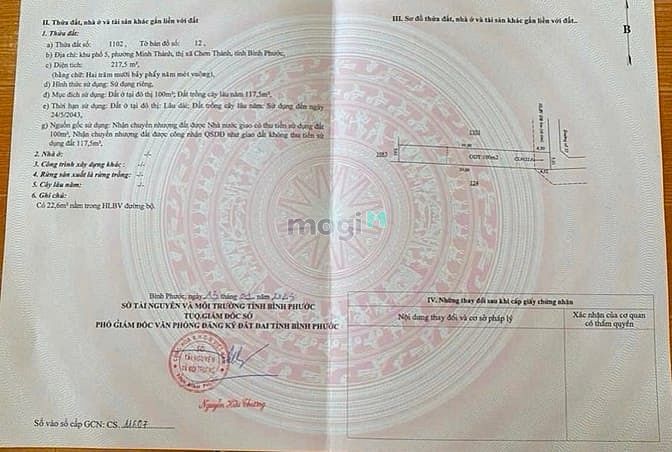 II. Thửa đất, nhà ở và tài sản khác gắn liền với đất
1. Thửa đất:
a) Thửa đất số: 1102 , Tờ bản đồ số: 12 ,
b) Địa chỉ: khu phố 5, phường Minh Thành, thị xã Chơn Thành, tỉnh Bình Phước,
c) Diện tích: 217,5 m²,
(bằng chữ: Hai trăm mười bảy phẩy năm mét vuông),
d) Hình thức sử dụng: Sử dụng riêng,
đ) Mục đích sử dụng: Đất ở tại đô thị 100m²; Đất trồng cây lâu năm 117,5m²,
e) Thời hạn sử dụng: Đất ở tại đô thị: Lâu dài; Đất trồng cây lâu năm: Sử dụng đến ngày
24/5/2043,
g) Nguồn gốc sử dụng: Nhận chuyển nhượng đất được Nhà nước giao có thu tiền sử dụng đất
100m², Nhận chuyển nhượng đất được công nhận QSDĐ như giao đất không thu tiền sử
dụng đất 117,5m².
2. Nhà ở: -/-
3. Công trình xây dựng khác: -/-
4. Rừng sản xuất là rừng trồng: -/-
5. Cây lâu năm: -/-
6. Ghi chú:
Có 22,6m² nằm trong HLBV đường bộ.
Bình Phước, ngày tháng năm
SỞ TÀI NGUYÊN VÀ MÔI TRƯỜNG TỈNH BÌNH PHƯỚC
TUQ.GIÁM ĐỐC SỞ
PHÓ GIÁM ĐỐC VĂN PHÒNG ĐĂNG KÝ ĐẤT ĐAI TỈNH BÌNH PHƯỚC
SỞ
TÀI NGUYÊN
VÀ MÔI TRƯỜNG
Số vào sổ cấp GCN: CS.
III. Sơ đồ thửa đất, nhà ở và tài sản khác gắn liền với đất..
B
ODT 100m2
mogi
IV. Những thay đổi sau khi cấp giấy chứng nhận
Nội dung thay đổi và cơ sở pháp lý
Xác nhận của cơ quan
có thẩm quyền